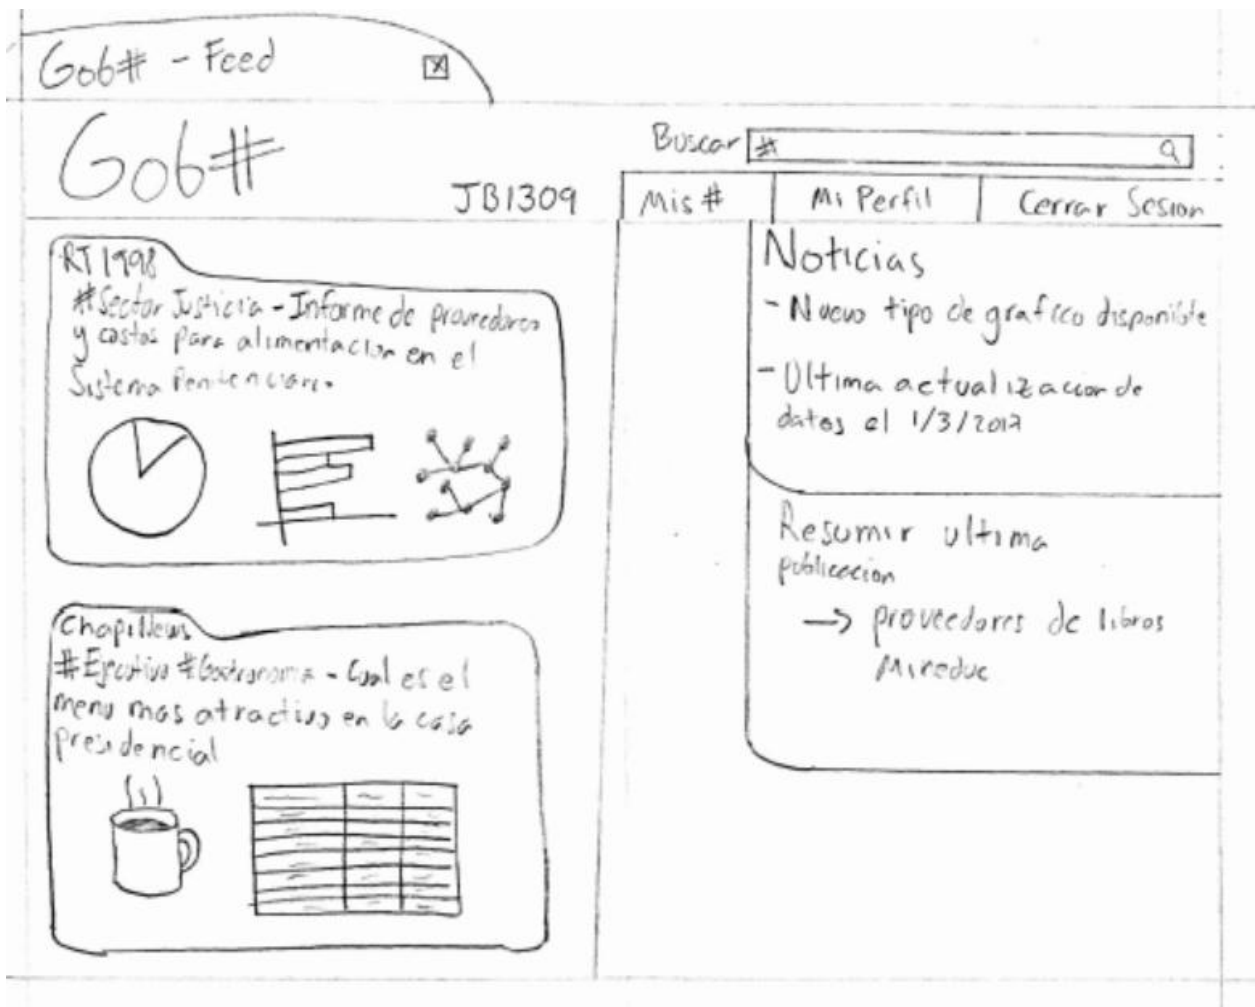 Gob# - Feed
Gob#
Buscar #
JB1309
Mis #
Mi Perfil
Cerrar Sesion
RT1998
#Sector Justicia - Informe de proveedores
y costos para alimentacion en el
Sistema Penitenciario.
Chapinews
#Ejecutivo #Gastronomia - Cual es el
menu mas atractivo en la casa
presidencial
Noticias
- Nuevo tipo de grafico disponible
- Ultima actualizacion de
datos el 1/3/2012
Resumir ultima
publicacion
→ proveedores de libros
Mineduc